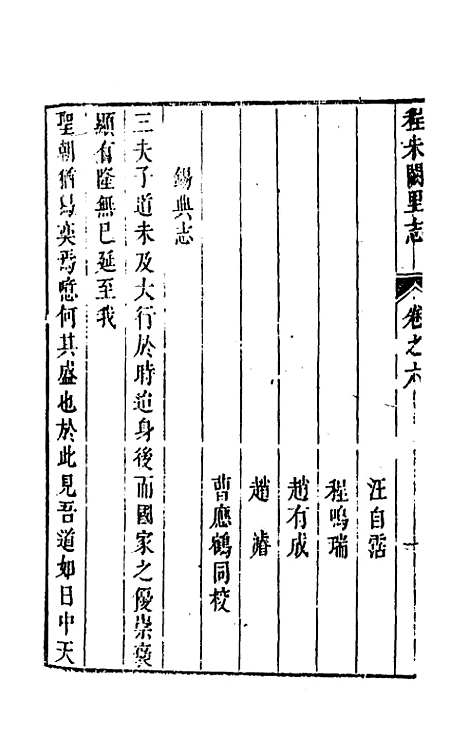 程朱闕里志
卷之六
一
汪自霑
程鳴瑞
趙有成
趙濬
曹應鶴同校
錫典志
三夫子道未及大行於時迨身後而國家之優崇褒
顯有隆無已延至我
聖朝猶昜奕焉噫何其盛也於此見吾道如日中天